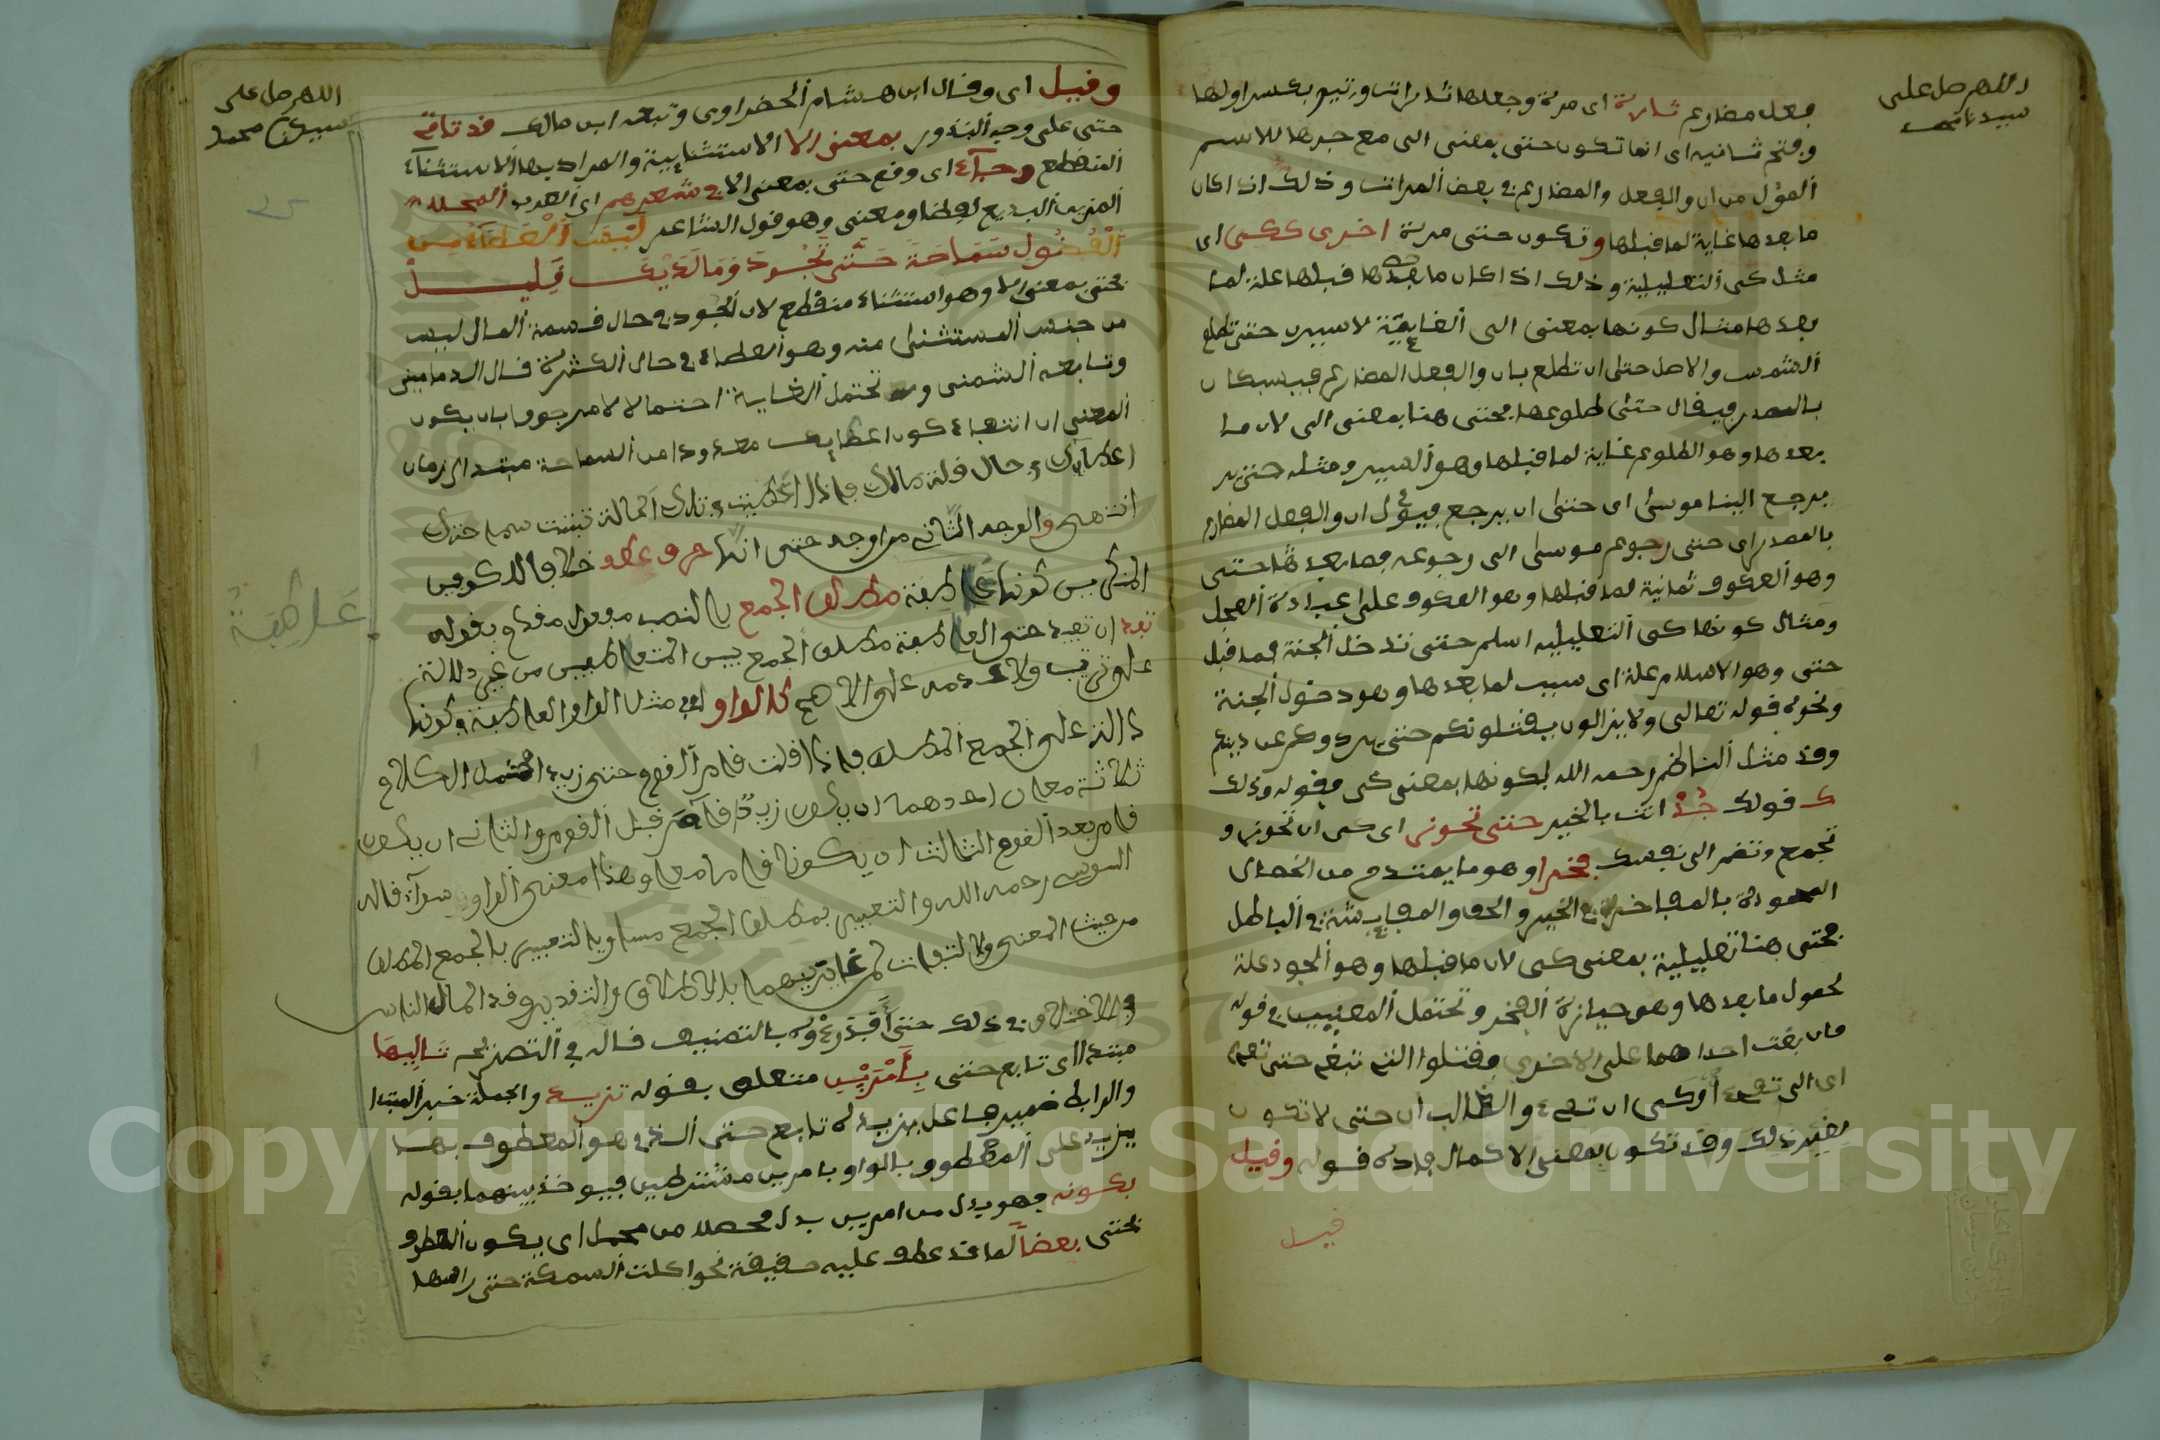 اللهم صل على
سيدنا محمد
فعل مضارع تارة اى مرة وجعلها ثلاث مرات ورتبه بكسر اولها
وفتح ثانيه اى انها تكون حتى بمعنى الى مع جرها للاسم
المؤل من ان والفعل والمضارع في بعض المرات وذلك اذا كان
ما بعدها غاية لما قبلها وتكون حتى مرة اخرى ككى اى
مثل كى التعليلية وذلك اذا كان ما قبلها علة لما
بعدها مثال كونها بمعنى الى الغايية لا سيرن حتى تطلع
الشمس والاصل حتى ان تطلع بان والفعل المضارع
بالمصدر فيقال حتى طلوعها فحتى هنا بمعنى الى لان ما
بعدها وهو الطلوع غاية لما قبلها وهو السير ومثله حتى
يرجع الينا موسى اى حتى ان يرجع فيؤل ان والفعل المضارع
بالمصدر اى حتى رجوع موسى الى رجوعه فما بعد حتى
وهو العكوف لما قبلها وهو العكوف على عبادة العجل
ومثال كونها كى التعليليه اسلم حتى تدخل الجنة فما قبل
حتى وهو الاسلام علة اى سبب لما بعدها وهو دخول الجنة
ونحوه قوله تعالى ولا يزالون يقتلونكم حتى يردوكم عن دينكم
وقد مثل الناظم رحمه الله لكونها بمعنى كى بقوله وذلك
ك قولك جُدْ انت بالخير حتى تحوز اى كى ان تحوز و
تجمع وتضم الى نفسك فخرا وهو ما يمتدح من الخصال
المحمودة بالمفاخرة في الخير والحق والمفايشة في الباطل
فحتى هنا تعليلية بمعنى كى لان ما قبلها وهو الجود علة
لحصول ما بعدها وهو حيازة الفخر وتحتمل المعنيين في قوله
فان بغت احداهما على الاخرى فقتلوا التى تبغى حتى تفىء
اى الى تفىء او كى ان تفىء والغالب ان حتى لا تكون
بغير ذلك وقد تكون بمعنى الا كما افاده قوله وقيل
قيل
اللهم صل على
سيدنا محمد
وقيل اى وقال ابن هشام الخضراوى وتبعه ابن مالك قد تاتى
حتى على وجه الندور بمعنى الا الاستثنايية والمراد بها الاستثناء
المنقطع وجاء اى وقع حتى بمعنى الا في شعرهم اى العرب
المزين البديع لفظا ومعنى وهو قول الشاعر ليس العطاء من
الفضول سماحة حتى تجود وما لديك قليل
فحتى بمعنى الا وهو استثناء منقطع لان الجود في حال قسمة المال ليس
من جنس المستثنى منه وهو العطاء في حال الكثرة قال الدمامينى
وتابعه الشمنى تحتمل الغاية احتمالا لا مرجوحا بان يكون
المعنى ان انتفاء كون اعطايك معدودا من السماحة ممتد الى زمان
اعطايك في حال قلة مالك فاذا اعطيت في تلك الحالة ثبتت سماحتك
انتهى والوجه الثانى من اوجه حتى انها حرف عطف خلافا للكوفيين
المنكرين كونها عاطفة مطلق الجمع بالنصب مفعول مقدم بقوله
تفد ان تفيد حتى العاطفة مطلق الجمع بين المتعاطفين من غير دلالة
على ترتيب ولا عدمه على الاصح كالواو اى مثل الواو العاطفة في كونها
دالة على الجمع المطلق فاذا قلت قام القوم حتى زيد احتمل الكلام
ثلاثة معان احدهما ان يكون زيد قام قبل القوم والثانى ان يكون
قام بعد القوم الثالث ان يكونا قاما معا وهذا معنى الواو سواء قاله
السوسى رحمه الله والتعبير بمطلق الجمع مساو للتعبير بالجمع المطلق
من حيث المعنى ولا التفات لمن غاير بينهما بالاطلاق والتقييد وقد اطال الناس
والاختلاف في ذلك حتى افردوه بالتصنيف قاله في التصريح تاليها
مبتدا اى تابع حتى بامرين متعلق بقوله تزيد والجملة خبر المبتدا
والرابط ضمير فاعل يزيد اى تابع حتى الذى هو المعطوف بها
يزيد على المعطوف بالواو بامرين مشترطين فيوخذ بينهما بقوله
بكونه فهو بدل من امرين بدل مفصل من مجمل اى يكون المعطوف
بحتى بعضا لما قد عطف عليه حقيقة نحو اكلت السمكة حتى راسها
عاطفة
Copyright © King Saud University